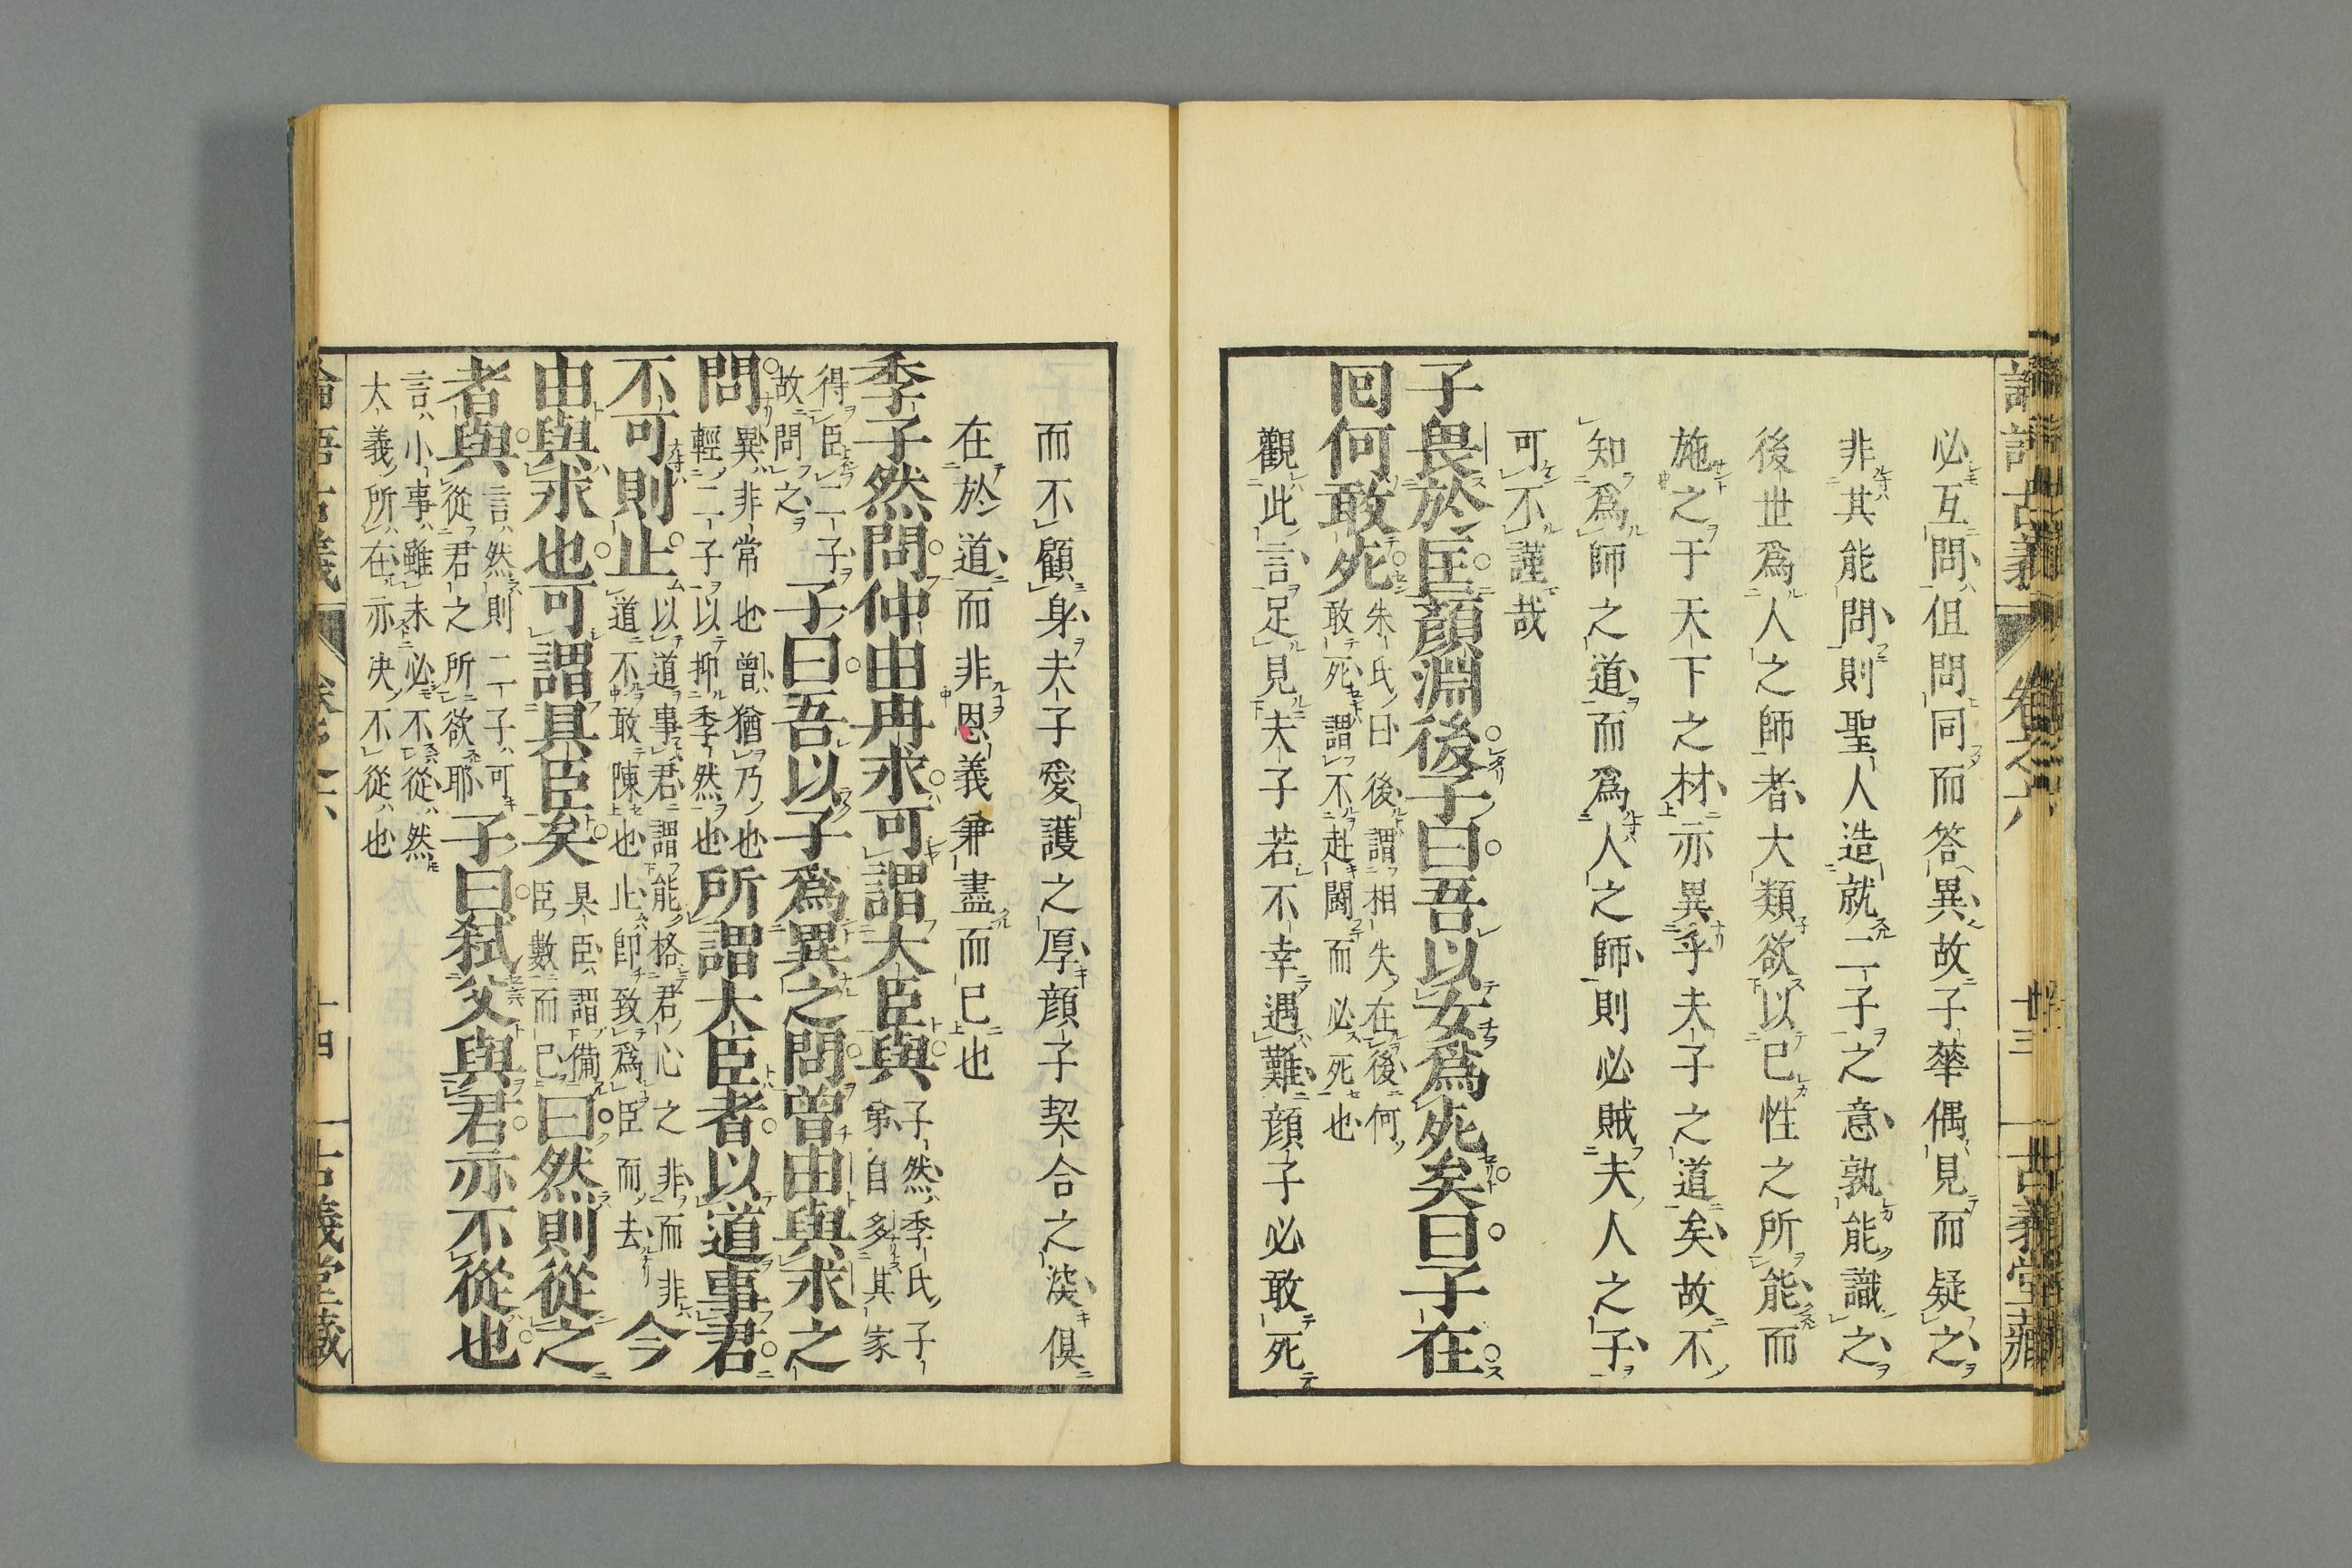 論語古義 卷之六 十三 古義堂藏
必互問但問同而答異故子華偶見而疑之
非其能問則聖人造就二子之意孰能識之
後世爲人之師者大類欲以己性之所能而
施之于天下之材亦異乎夫子之道矣故不
知爲師之道而爲人之師則必賊夫人之子
可不謹哉
子畏於匡顏淵後子曰吾以女爲死矣曰子在
回何敢死
朱氏曰後謂相失在後何
敢死謂不赴鬪而必死也
觀此言足見夫子若不幸遇難顏子必敢死
而不顧身夫子愛護之厚顏子契合之深俱
在於道而非恩義兼盡而已也
季子然問仲由冉求可謂大臣與
子然季氏子
弟自多其家
得臣二子
故問之
子曰吾以子爲異之問曾由與求之
問
異非常也曾猶乃也
輕二子以抑季然也
所謂大臣者以道事君
不可則止
以道事君謂能格君心之非而非
道不敢陳也止卽致爲臣而去
今
由與求也可謂具臣矣
具臣謂備
臣數而已
曰然則從之
者與
言然則二子可
從君之所欲耶
子曰弑父與君亦不從也
言小事雖未必不從然
大義所在亦決不從也
論語古義 卷之六 十四 古義堂藏